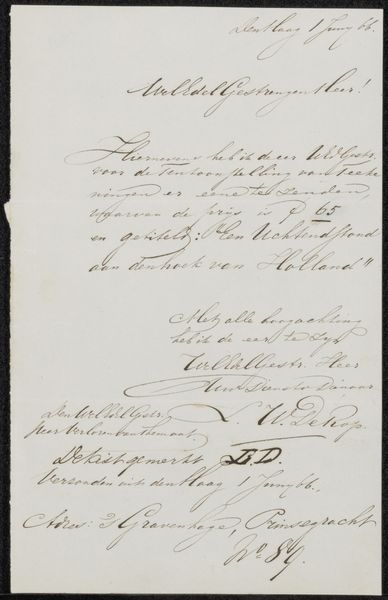 Den Haag 1 Juny 66.
WelEdelGestrengen Heer!
Hiernevens heb ik de eer UEdGestr.
voor de Tentoonstelling van teeke
ningen er eene te zenden,
waarvan de prijs is 65
en getiteld: "Een Uchtendstond
aan den hoek van Holland"
Met alle hoogachting
heb ik de eer te zyn
WelEdelGestr. Heer
Uw Dienstw Dienaar
L. W. De Kop.
Den WelEdelGestr.
Heer Verloren van Themaat
De kist gemerkt
Verzonden uit den Haag 1 Juny 66.
Adres: S Gravenhage, Prinsegracht
No 89.